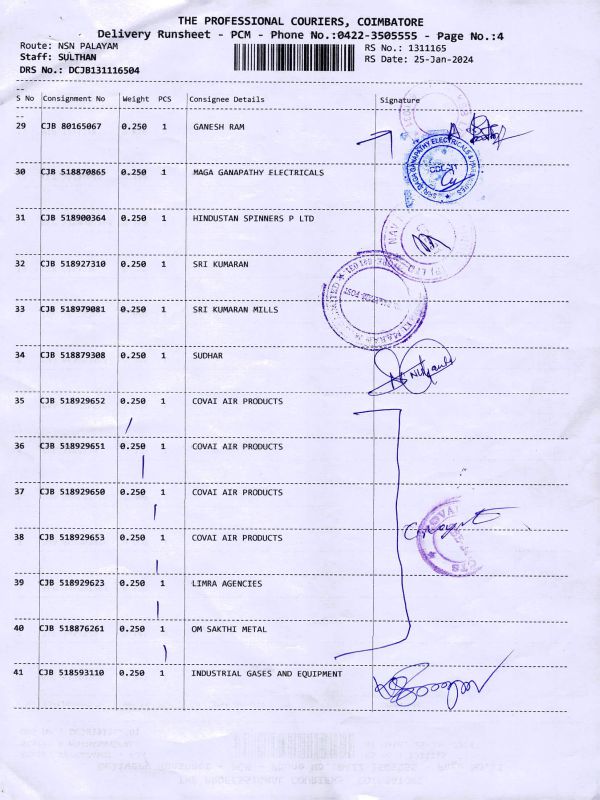 THE PROFESSIONAL COURIERS, COIMBATORE
Delivery Runsheet - PCM - Phone No.:0422-3505555 - Page No.:4
Route: NSN PALAYAM
RS No.: 1311165
Staff: SULTHAN
RS Date: 25-Jan-2024
DRS No.: DCJB131116504
--
S No Consignment No Weight PCS Consignee Details Signature
--
29 CJB 80165067 0.250 1 GANESH RAM
30 CJB 518870865 0.250 1 MAGA GANAPATHY ELECTRICALS
31 CJB 518900364 0.250 1 HINDUSTAN SPINNERS P LTD
32 CJB 518927310 0.250 1 SRI KUMARAN
33 CJB 518979081 0.250 1 SRI KUMARAN MILLS
34 CJB 518879308 0.250 1 SUDHAR
35 CJB 518929652 0.250 1 COVAI AIR PRODUCTS
36 CJB 518929651 0.250 1 COVAI AIR PRODUCTS
37 CJB 518929650 0.250 1 COVAI AIR PRODUCTS
38 CJB 518929653 0.250 1 COVAI AIR PRODUCTS
39 CJB 518929623 0.250 1 LIMRA AGENCIES
40 CJB 518876261 0.250 1 OM SAKTHI METAL
41 CJB 518593110 0.250 1 INDUSTRIAL GASES AND EQUIPMENT